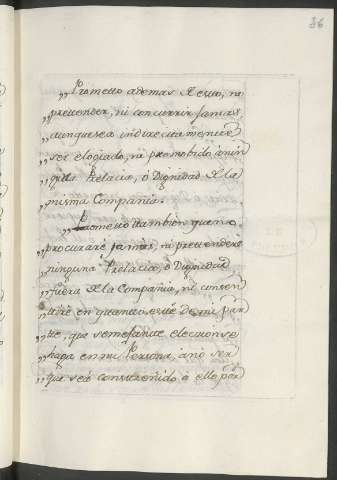 86
„Prometto ademas de esto, no
„prettender, ni concurrir Jamas
„aunque sea indirectamente
„ser elegiado, ni promobido à nin
„guna Prelacia, ô Dignidad de la
„misma Compania.
„Prometto ttambien que no
„procurarè jamàs, ni prettenderè
„ninguna Prelacia, ò Dignidad
„fuera de la Compañia, ni consen
„ttirè en quantto estè de mi par
„tte, que semejantte eleccion se
„haga en mi Persona, à no ser
„que seà constreñido à ello por